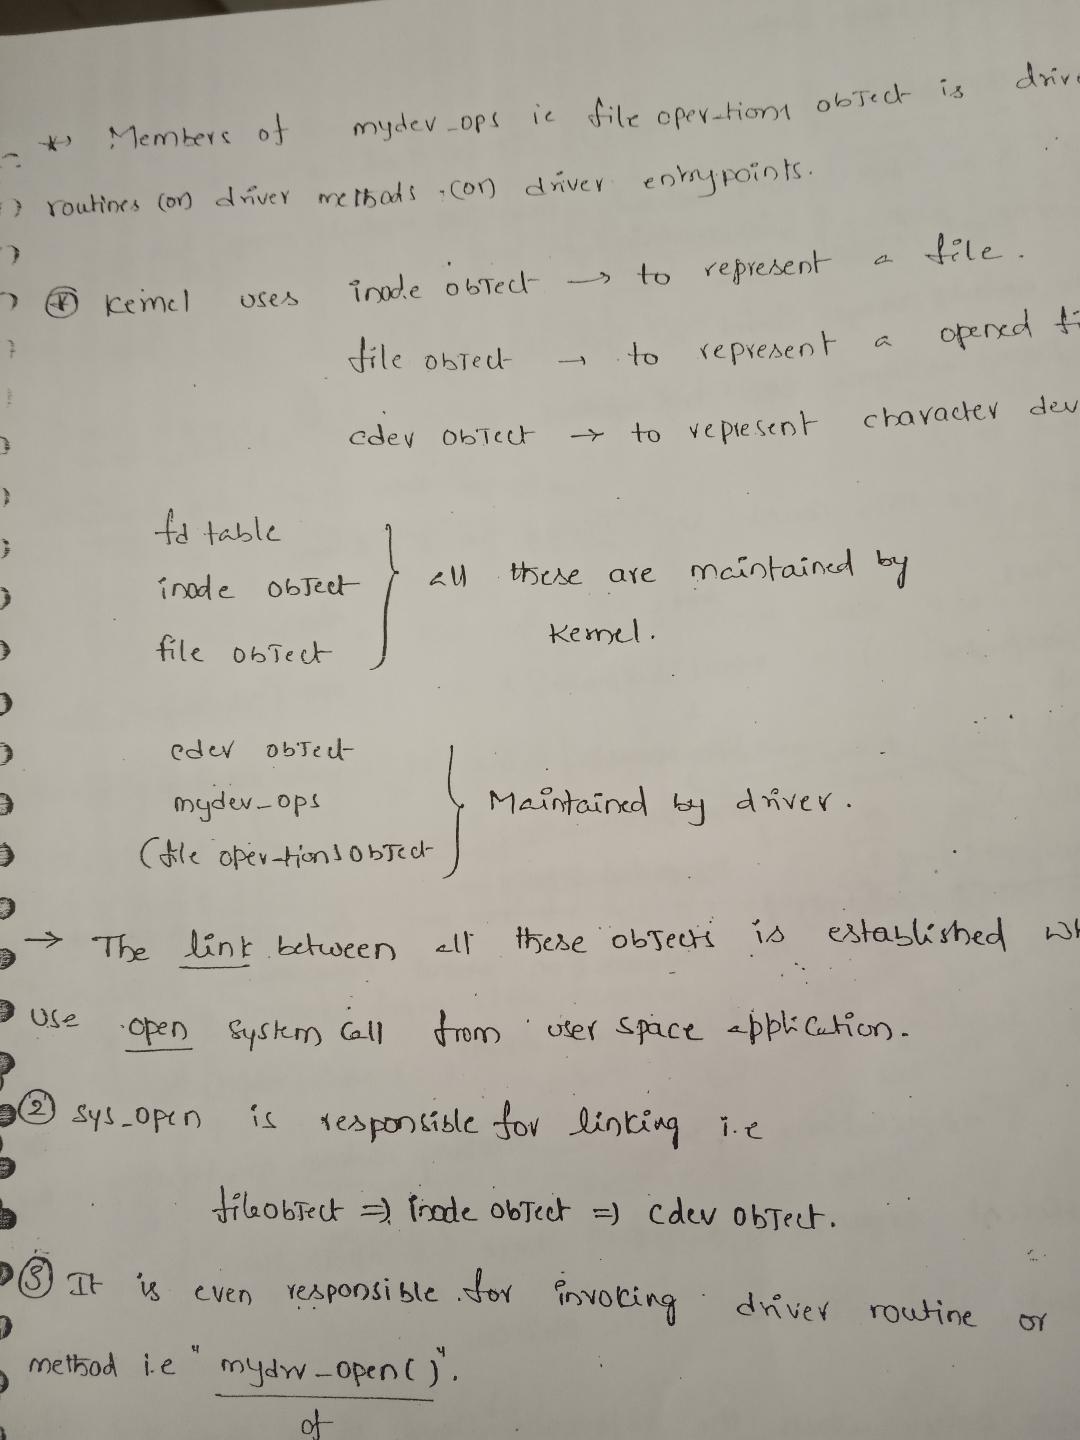 * Members of mydev_ops ie file operations object is drive
routines (or) driver methods, (or) driver entrypoints.
* Kernel uses inode object → to represent a file.
file object → to represent a opened fi
cdev object → to represent character dev
fd table
inode object } all these are maintained by
file object kernel.
cdev object
mydev_ops } Maintained by driver.
(file operations object
→ The link between all these objects is established wh
use open system call from user space application.
② sys_open is responsible for linking i.e
fileobject => inode object => cdev object.
③ It is even responsible for invoking driver routine or
method i.e "mydrv_open()".
of